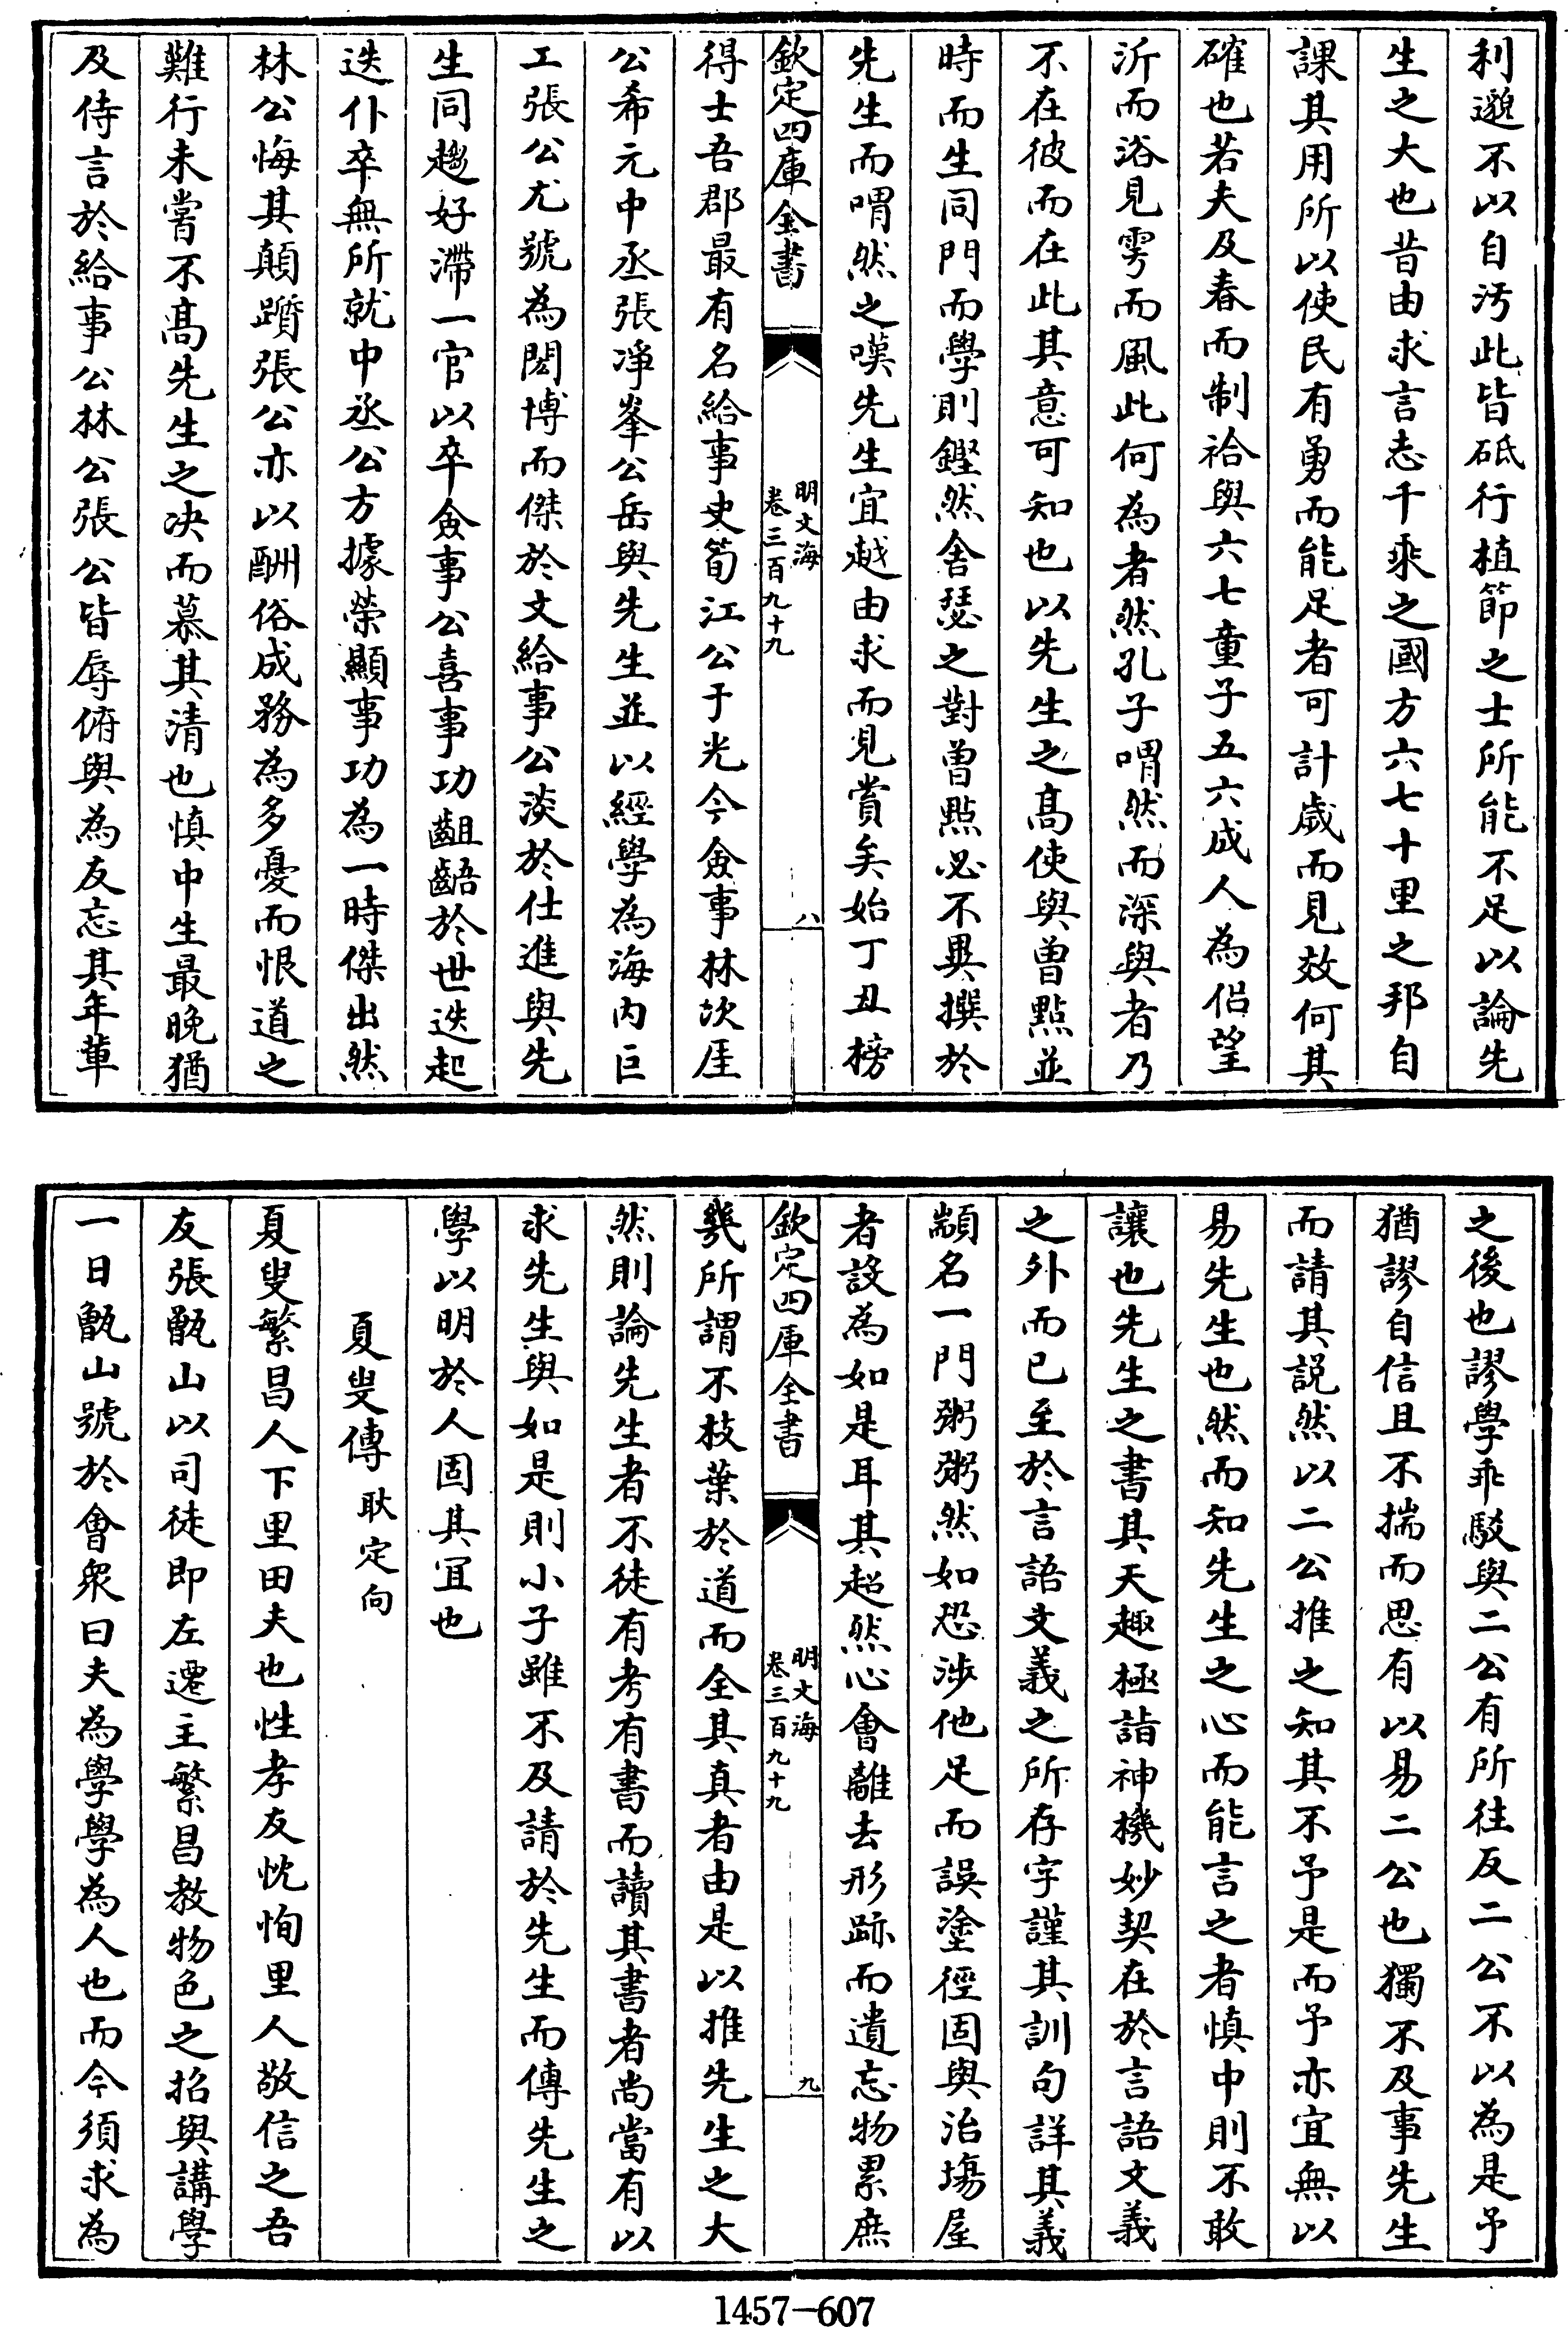 利邈不以自汚此皆砥行植節之士所能不足以論先
生之大也昔由求言志千乘之國方六七十里之邦自
課其用所以使民有勇而能足者可計歳而見效何其
確也若夫及春而制袷與六七童子五六成人為侣望
沂而浴見雩而風此何為者然孔子喟然而深與者乃
不在彼而在此其意可知也以先生之髙使與曽㸃並
時而生同門而學則鏗然舍瑟之對曽㸃必不異撰於
先生而喟然之嘆先生宜越由求而見賞矣始丁丑榜
欽定四庫全書
明文海
卷三百九十九
八
得士吾郡最有名給事史筍江公于光今僉事林次厓
公希元中丞張凈峯公岳與先生並以經學為海内巨
工張公尤號為閎博而傑於文給事公淡於仕進與先
生同趨好滯一官以卒僉事公喜事功齟齬於世迭起
迭仆卒無所就中丞公方據榮顯事功為一時傑出然
林公悔其顛躓張公亦以酬俗成務為多憂而恨道之
難行未嘗不髙先生之决而慕其清也慎中生最晩猶
及侍言於給事公林公張公皆辱俯與為友忘其年軰
之後也謬學乖駁與二公有所往反二公不以為是予
猶謬自信且不揣而思有以易二公也獨不及事先生
而請其説然以二公推之知其不予是而予亦宜無以
易先生也然而知先生之心而能言之者慎中則不敢
讓也先生之書其天趣極詣神機妙契在於言語文義
之外而已至於言語文義之所存字謹其訓句詳其義
顓名一門粥粥然如恐涉他足而誤塗徑固與治塲屋
者設為如是耳其超然心會離去形跡而遺忘物累庶
欽定四庫全書
明文海
卷三百九十九
九
幾所謂不枝葉於道而全其真者由是以推先生之大
然則論先生者不徒有考有書而讀其書者尚當有以
求先生與如是則小子雖不及請於先生而傳先生之
學以明於人固其冝也
夏叟傳 耿定向
夏叟繁昌人下里田夫也性孝友忱恂里人敬信之吾
友張甑山以司徒即左遷主繁昌教物色之招與講學
一日甑山號於會衆曰夫為學學為人也而今須求為
1457—607